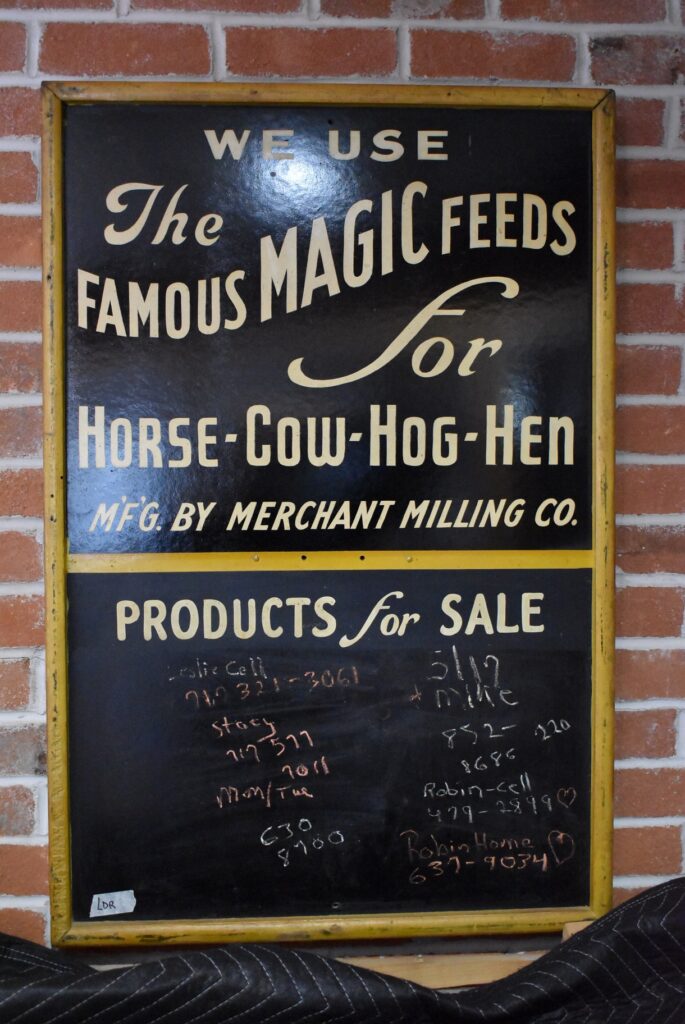 WE USE
The
FAMOUS MAGIC FEEDS
for
HORSE-COW-HOG-HEN
M'F'G. BY MERCHANT MILLING CO.
PRODUCTS for SALE
Leslie Cell
717 321-3061
Stacy
717 577
7011
Mon/Tue
630
8700
Mike
852-
220
8686
Robin-cell
479-2899
Robin Home
637-9034
LDR